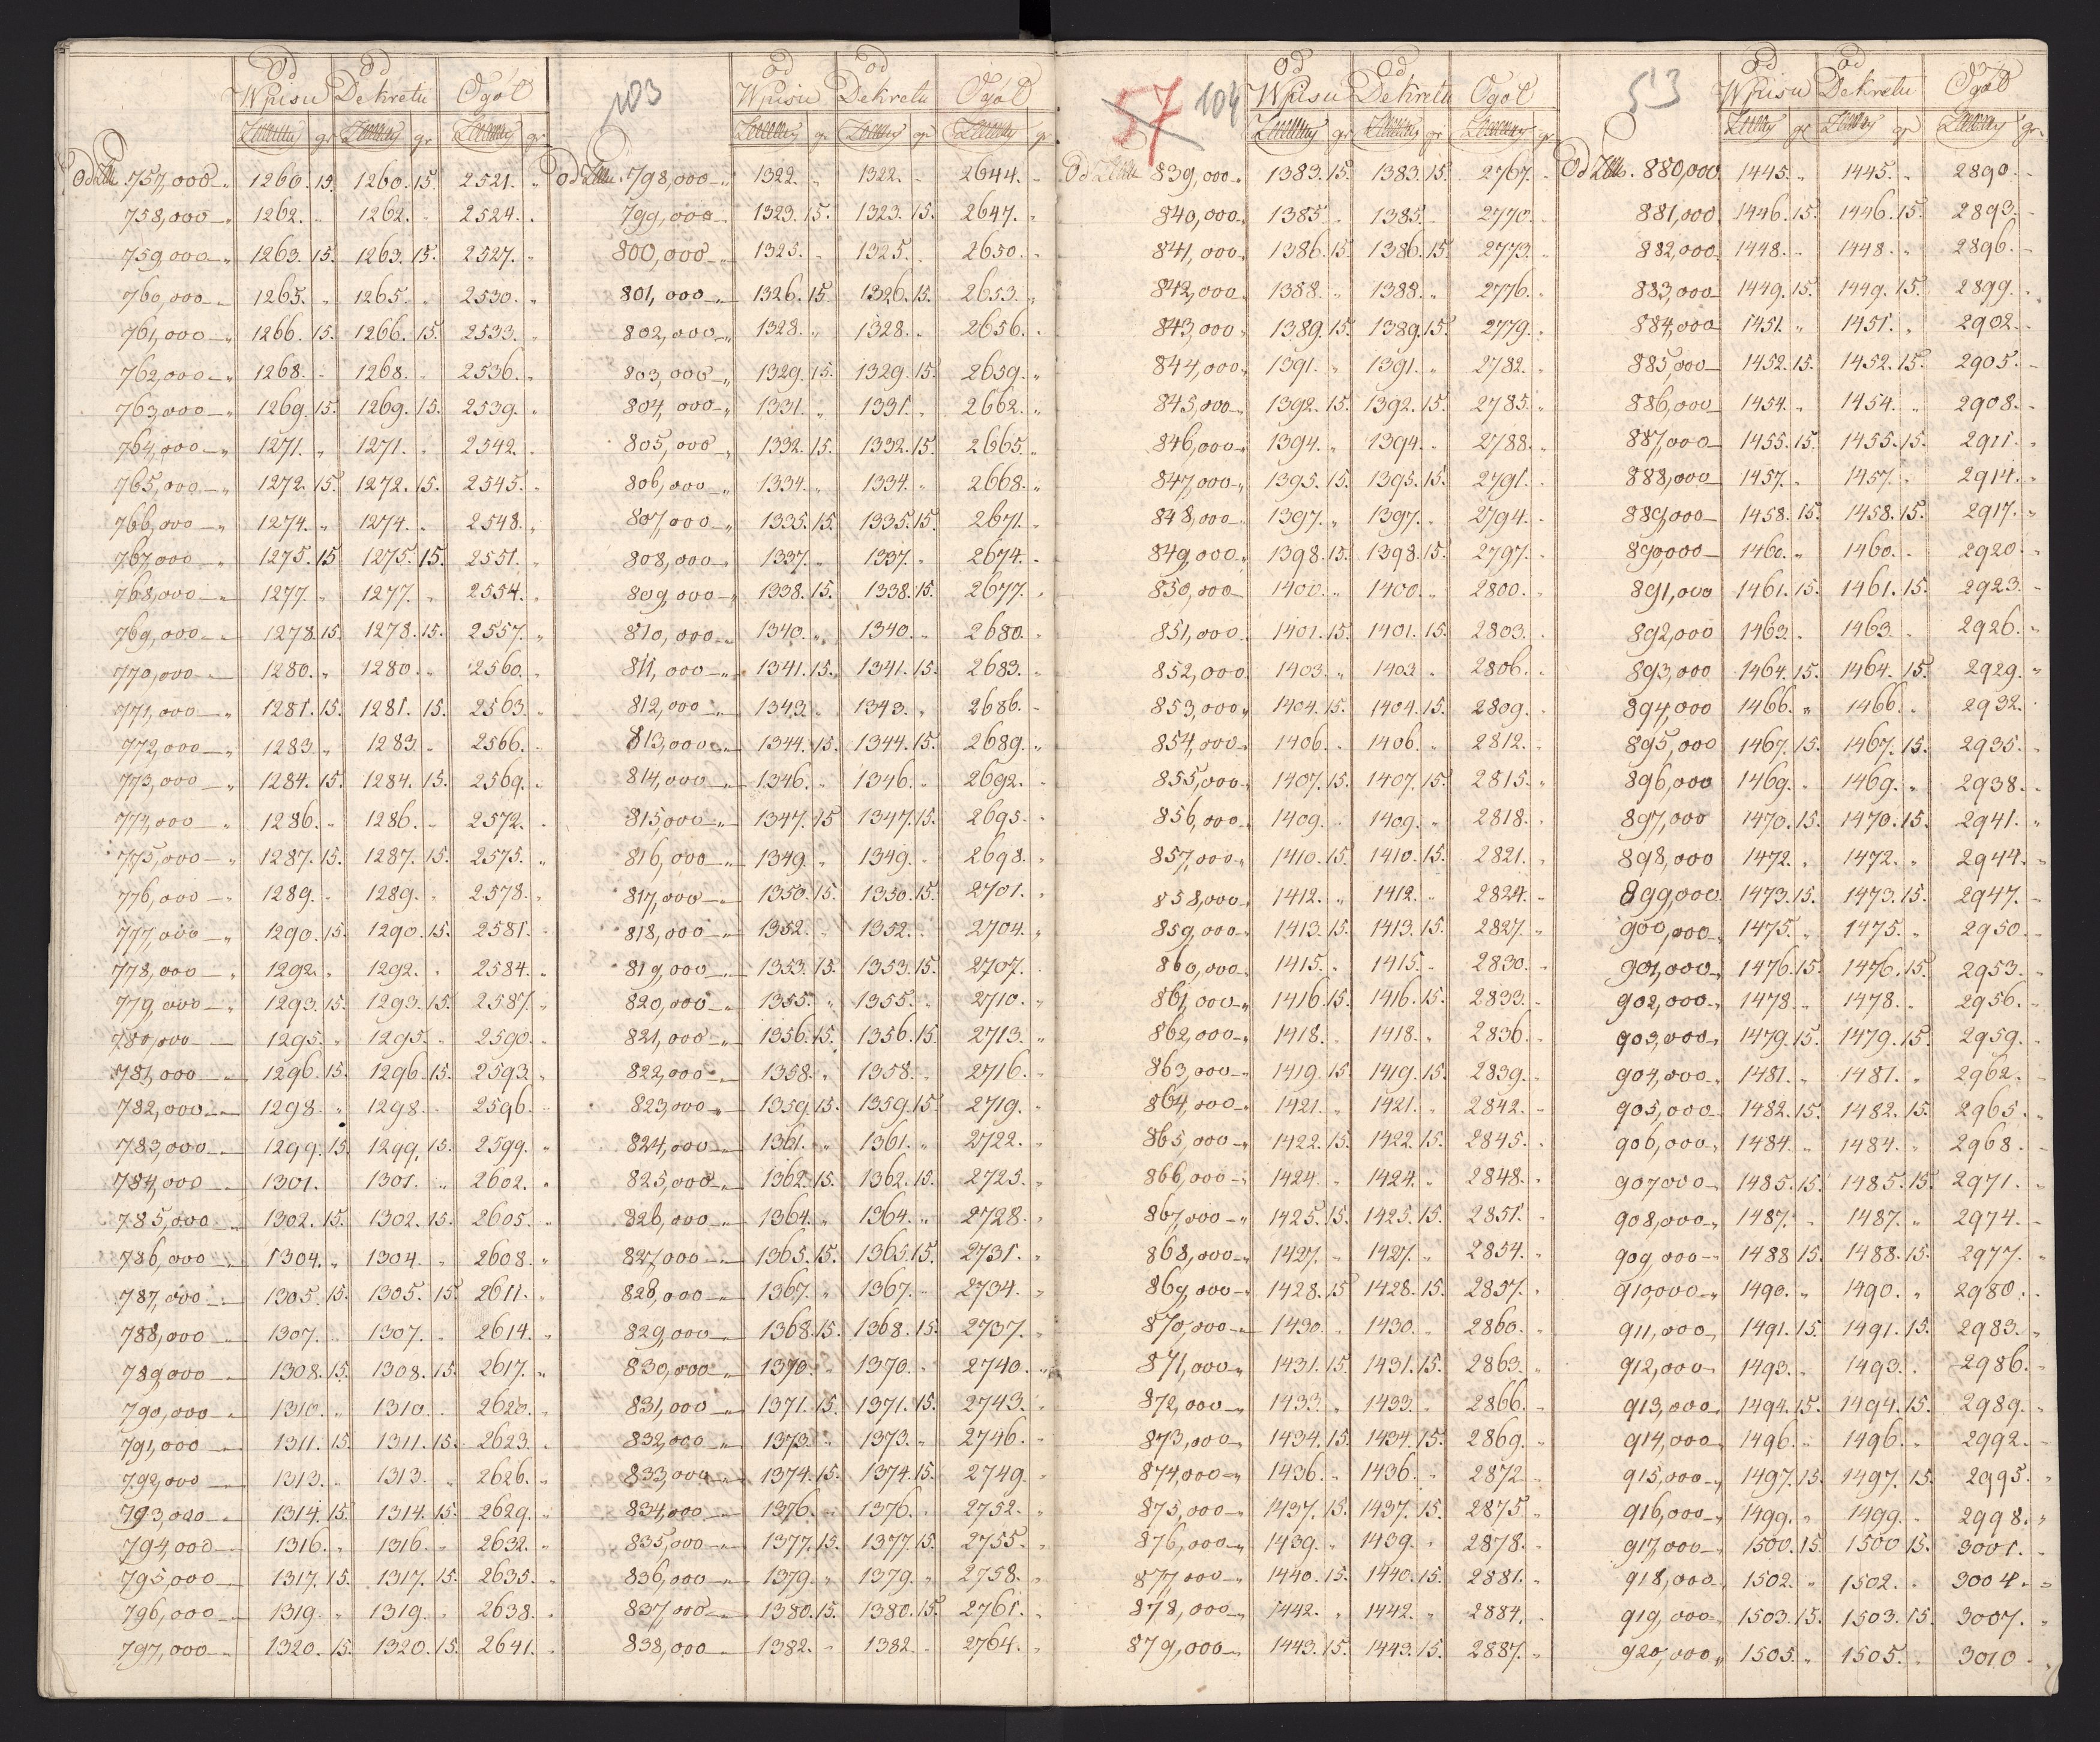 Od Od
Wpisu Dekretu Ogół
gr gr gr
Od 757,000 „ 1260. 15. 1260. 15. 2521. „
758,000 „ 1262. „ 1262. „ 2524. „
759,000 „ 1263. 15. 1263. 15. 2527. „
760,000 „ 1265. „ 1265. „ 2530. „
761,000 „ 1266. 15. 1266. 15. 2533. „
762,000 „ 1268. „ 1268. „ 2536. „
763,000 „ 1269. 15. 1269. 15. 2539. „
764,000 „ 1271. „ 1271. „ 2542. „
765,000 „ 1272. 15. 1272. 15. 2545. „
766,000 „ 1274. „ 1274. „ 2548. „
767,000 „ 1275. 15 1275. 15. 2551. „
768,000 „ 1277. „ 1277. „ 2554. „
769,000 „ 1278. 15. 1278. 15. 2557. „
770,000 „ 1280. „ 1280. „ 2560. „
771,000 „ 1281. 15. 1281. 15. 2563. „
772,000 „ 1283. „ 1283. „ 2566. „
773,000 „ 1284. 15. 1284. 15. 2569. „
774,000 „ 1286. „ 1286. „ 2572. „
775,000 „ 1287. 15. 1287. 15. 2575. „
776,000 „ 1289. „ 1289. „ 2578. „
777,000 „ 1290. 15. 1290. 15. 2581. „
778,000 „ 1292. „ 1292. „ 2584. „
779,000 „ 1293. 15. 1293. 15. 2587. „
780,000 „ 1295. „ 1295. „ 2590. „
781,000 „ 1296. 15. 1296. 15. 2593. „
782,000 „ 1298. „ 1298. „ 2596. „
783,000 „ 1299. 15. 1299. 15. 2599. „
784,000 „ 1301. „ 1301. „ 2602. „
785,000 „ 1302. 15. 1302. 15. 2605. „
786,000 „ 1304. „ 1304. „ 2608. „
787,000 „ 1305. 15. 1305. 15. 2611. „
788,000 „ 1307. „ 1307. „ 2614. „
789,000 „ 1308. 15. 1308. 15. 2617. „
790,000 „ 1310. „ 1310. „ 2620. „
791,000 „ 1311. 15. 1311. 15. 2623. „
792,000 „ 1313. „ 1313. „ 2626. „
793,000 „ 1314. 15. 1314. 15. 2629. „
794,000 „ 1316. „ 1316. „ 2632. „
795,000 „ 1317. 15. 1317. 15. 2635. „
796,000 „ 1319. „ 1319. „ 2638. „
797,000 „ 1320. 15. 1320. 15. 2641. „
103
Od Od
Wpisu Dekretu Ogół
gr gr gr
Od 798,000 „ 1322. „ 1322. „ 2644. „
799,000 „ 1323. 15. 1323. 15. 2647. „
800,000 „ 1325. „ 1325. „ 2650. „
801,000 „ 1326. 15. 1326. 15. 2653. „
802,000 „ 1328. „ 1328. „ 2656. „
803,000 „ 1329. 15. 1329. 15. 2659. „
804,000 „ 1331. „ 1331. „ 2662. „
805,000 „ 1332. 15. 1332. 15. 2665. „
806,000 „ 1334. „ 1334. „ 2668. „
807,000 „ 1335. 15. 1335. 15. 2671. „
808,000 „ 1337. „ 1337. „ 2674. „
809,000 „ 1338. 15. 1338. 15. 2677. „
810,000 „ 1340. „ 1340. „ 2680. „
811,000 „ 1341. 15. 1341. 15. 2683. „
812,000 „ 1343. „ 1343. „ 2686. „
813,000 „ 1344. 15. 1344. 15. 2689. „
814,000 „ 1346. „ 1346. „ 2692. „
815,000 „ 1347. 15 1347. 15. 2695. „
816,000 „ 1349. „ 1349. „ 2698. „
817,000 „ 1350. 15. 1350. 15. 2701. „
818,000 „ 1352. „ 1352. „ 2704. „
819,000 „ 1353. 15. 1353. 15. 2707. „
820,000 „ 1355. „ 1355. „ 2710. „
821,000 „ 1356. 15. 1356. 15. 2713. „
822,000 „ 1358. „ 1358. „ 2716. „
823,000 „ 1359. 15. 1359. 15. 2719. „
824,000 „ 1361. „ 1361. „ 2722. „
825,000 „ 1362. 15. 1362. 15. 2725. „
826,000 „ 1364. „ 1364. „ 2728. „
827,000 „ 1365. 15. 1365. 15. 2731. „
828,000 „ 1367. „ 1367. „ 2734. „
829,000 „ 1368. 15. 1368. 15. 2737. „
830,000 „ 1370. „ 1370. „ 2740. „
831,000 „ 1371. 15. 1371. 15. 2743. „
832,000 „ 1373. „ 1373. „ 2746. „
833,000 „ 1374. 15. 1374. 15. 2749. „
834,000 „ 1376. „ 1376. „ 2752. „
835,000 „ 1377. 15. 1377. 15. 2755. „
836,000 „ 1379. „ 1379. „ 2758. „
837,000 „ 1380. 15. 1380. 15. 2761. „
838,000 „ 1382. „ 1382. „ 2764. „
57 104
Od Od
Wpisu Dekretu Ogół
gr gr gr
Od 839,000 „ 1383. 15. 1383. 15. 2767. „
840,000 „ 1385. „ 1385. „ 2770. „
841,000 „ 1386. 15. 1386. 15. 2773. „
842,000 „ 1388. „ 1388. „ 2776. „
843,000 „ 1389. 15. 1389. 15. 2779. „
844,000 „ 1391. „ 1391. „ 2782. „
845,000 „ 1392. 15. 1392. 15. 2785. „
846,000 „ 1394. „ 1394. „ 2788. „
847,000 „ 1395. 15. 1395. 15. 2791. „
848,000 „ 1397. „ 1397. „ 2794. „
849,000 „ 1398. 15. 1398. 15. 2797. „
850,000 1400. „ 1400. „ 2800. „
851,000 1401. 15. 1401. 15. 2803. „
852,000 1403. „ 1403 „ 2806. „
853,000 „ 1404. 15. 1404. 15. 2809. „
854,000 „ 1406. „ 1406. „ 2812. „
855,000 „ 1407. 15. 1407. 15. 2815. „
856,000 „ 1409. „ 1409. „ 2818. „
857,000 „ 1410. 15. 1410. 15. 2821. „
858,000 „ 1412. „ 1412. „ 2824. „
859,000 „ 1413. 15. 1413. 15. 2827. „
860,000 „ 1415. „ 1415. „ 2830. „
861,000 „ 1416. 15. 1416. 15. 2833. „
862,000 „ 1418. „ 1418. „ 2836. „
863,000 „ 1419. 15. 1419. 15. 2839. „
864,000 „ 1421. „ 1421. „ 2842. „
865,000 „ 1422. 15. 1422. 15. 2845. „
866,000 „ 1424. „ 1424. „ 2848. „
867,000 „ 1425. 15. 1425. 15. 2851. „
868,000 „ 1427. „ 1427. „ 2854. „
869,000 „ 1428. 15 1428. 15. 2857. „
870,000 „ 1430. „ 1430. „ 2860. „
871,000 „ 1431. 15. 1431. 15. 2863. „
872,000 „ 1433. „ 1433. „ 2866. „
873,000 „ 1434. 15. 1434. 15. 2869. „
874,000 „ 1436. „ 1436. „ 2872. „
875,000 „ 1437. 15. 1437. 15. 2875. „
876,000 „ 1439. „ 1439. „ 2878. „
877,000 „ 1440. 15. 1440. 15. 2881. „
878,000 „ 1442. „ 1442. „ 2884. „
879,000 „ 1443. 15. 1443. 15. 2887. „
53
Od Od
Wpisu Dekretu Ogół
gr gr gr
Od 880,000 1445. „ 1445. „ 2890. „
881,000 1446. 15. 1446. 15. 2893. „
882,000 1448. „ 1448. „ 2896. „
883,000 1449. 15. 1449. 15. 2899. „
884,000 1451. „ 1451. „ 2902. „
885,000 1452. 15. 1452. 15. 2905. „
886,000 1454. „ 1454. „ 2908. „
887,000 1455. 15. 1455. 15. 2911. „
888,000 1457. „ 1457. „ 2914. „
889,000 1458. 15. 1458. 15. 2917. „
890,000 1460. „ 1460. „ 2920. „
891,000 1461. 15. 1461. 15. 2923. „
892,000 1463. „ 1463. „ 2926. „
893,000 1464. 15. 1464. 15. 2929. „
894,000 1466. „ 1466. „ 2932. „
895,000 1467. 15. 1467. 15. 2935. „
896,000 1469. „ 1469. „ 2938. „
897,000 1470. 15. 1470. 15. 2941. „
898,000 1472. „ 1472. „ 2944. „
899,000 1473. 15. 1473. 15. 2947. „
900,000 „ 1475. „ 1475. „ 2950. „
901,000 „ 1476. 15. 1476. 15. 2953. „
902,000 „ 1478. „ 1478. „ 2956. „
903,000 „ 1479. 15. 1479. 15. 2959. „
904,000 „ 1481. „ 1481. „ 2962. „
905,000 „ 1482. 15. 1482. 15. 2965. „
906,000 „ 1484. „ 1484. „ 2968. „
907000 „ 1485. 15. 1485. 15. 2971. „
908,000 „ 1487. „ 1487. „ 2974. „
909,000 „ 1488 15. 1488. 15. 2977. „
910,000 „ 1490. „ 1490. „ 2980. „
911,000 „ 1491. 15. 1491. 15. 2983. „
912,000 „ 1493. „ 1493. „ 2986. „
913,000 „ 1494. 15. 1494. 15. 2989. „
914,000 „ 1496. „ 1496. „ 2992. „
915,000 „ 1497. 15. 1497. 15. 2995. „
916,000 „ 1499. „ 1499. „ 2998. „
917,000 „ 1500. 15. 1500 15. 3001. „
918,000 „ 1502. „ 1502. „ 3004. „
919,000 „ 1503. 15. 1503. 15. 3007. „
920,000 „ 1505. „ 1505. „ 3010 „